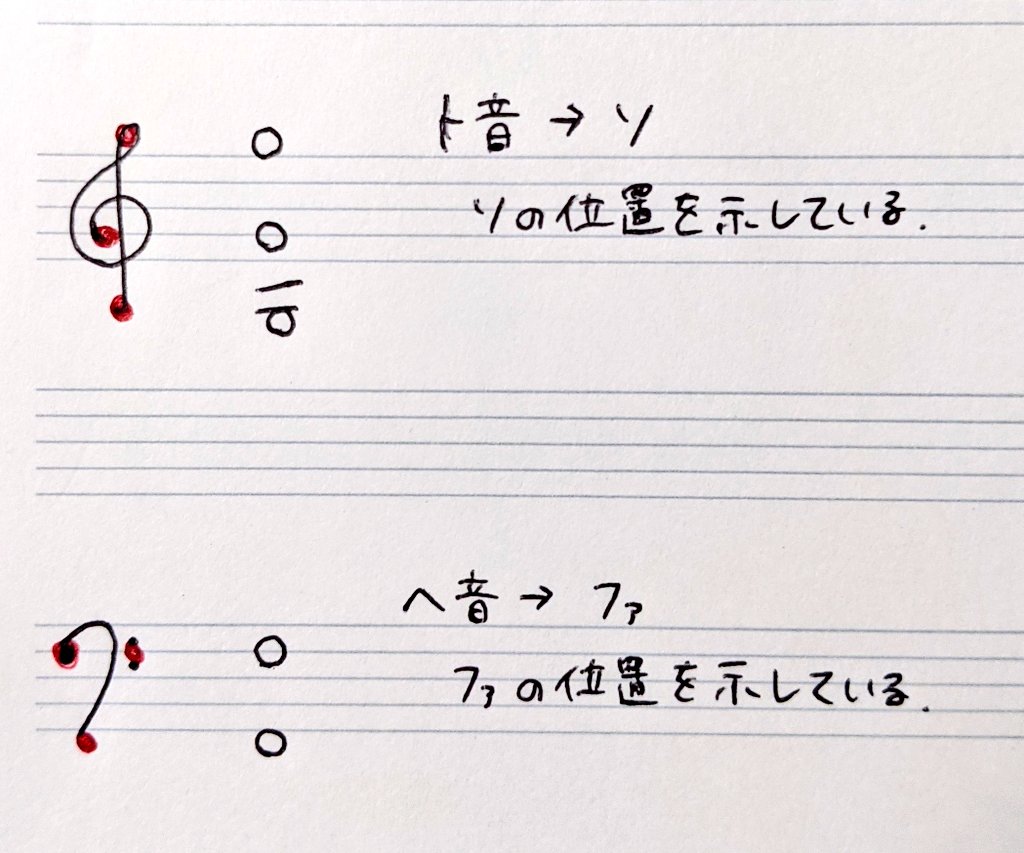 ト音 → ソ
ソの位置を示している.
ヘ音 → ファ
ファの位置を示している.